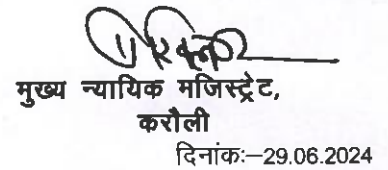 मुख्य न्यायिक मजिस्ट्रेट,
करौली
दिनांकः–29.06.2024